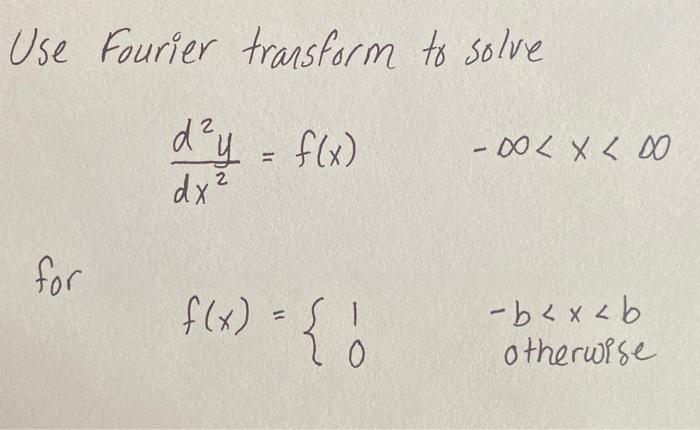 Use Fourier transform to solve
d²y/dx² = f(x) -∞ < x < ∞
for
f(x) = { 1 -b < x < b
0 otherwise